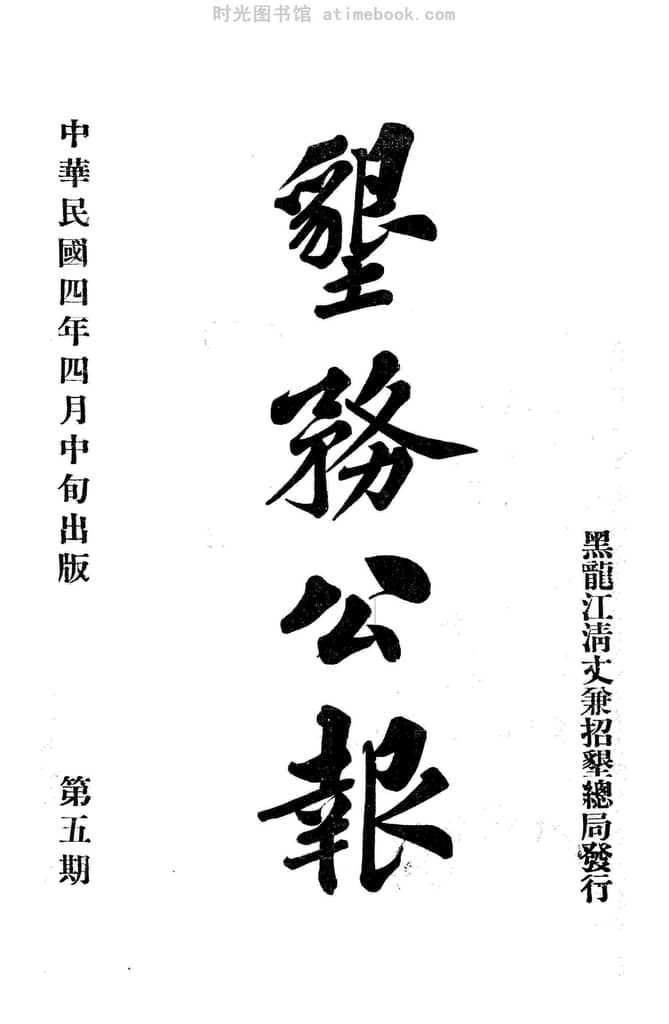 时光图书馆 atimebook.com
黑龍江清丈兼招墾總局發行
墾務公報
中華民國四年四月中旬出版
第五期